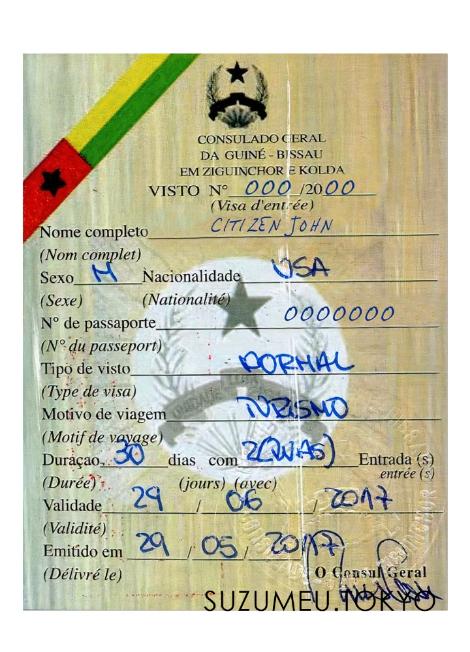 CONSULADO GERAL
DA GUINÉ - BISSAU
EM ZIGUINCHOR E KOLDA
VISTO N° 000 /2000
(Visa d'entrée)
Nome completo CITIZEN JOHN
(Nom complet)
Sexo M Nacionalidade USA
(Sexe) (Nationalité)
N° de passaporte 0000000
(N° du passeport)
Tipo de visto NORMAL
(Type de visa)
Motivo de viagem TURISMO
(Motif de voyage)
Duraçao 30 dias com 2(DUAS) Entrada (s)
(Durée) (jours) (avec) entrée (s)
Validade 29 / 06 / 2017
(Validité)
Emitido em 29 / 05 / 2017
(Délivré le) O Consul Geral
SUZUMEU.TOKYO